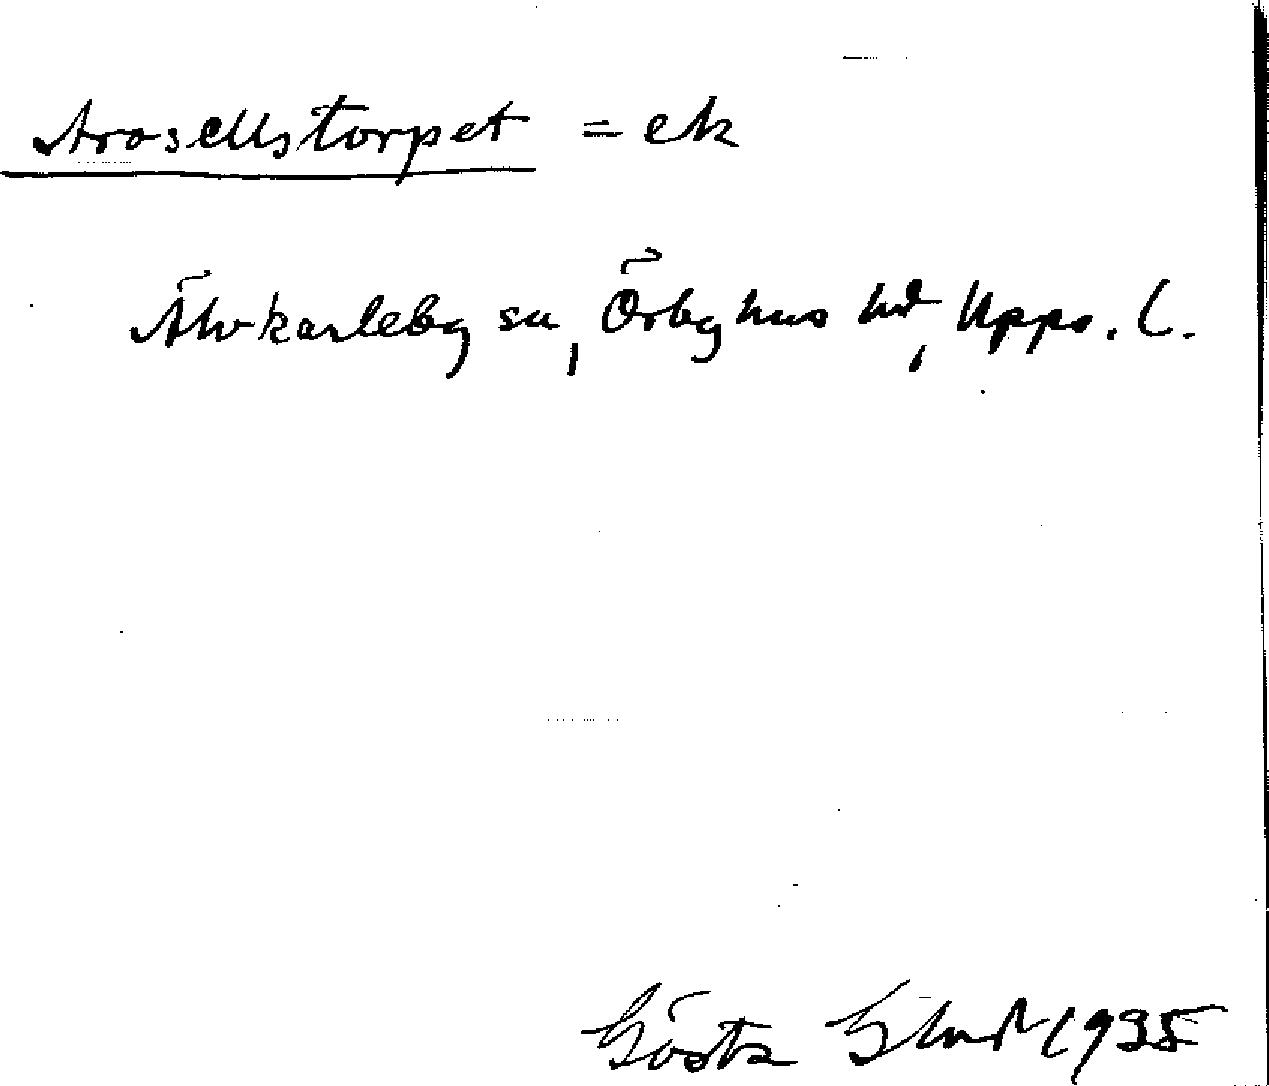 Arosellstorpet = ek
Älvkarleby sn, Örbyhus hd, Upps. l.
Gösta 1935